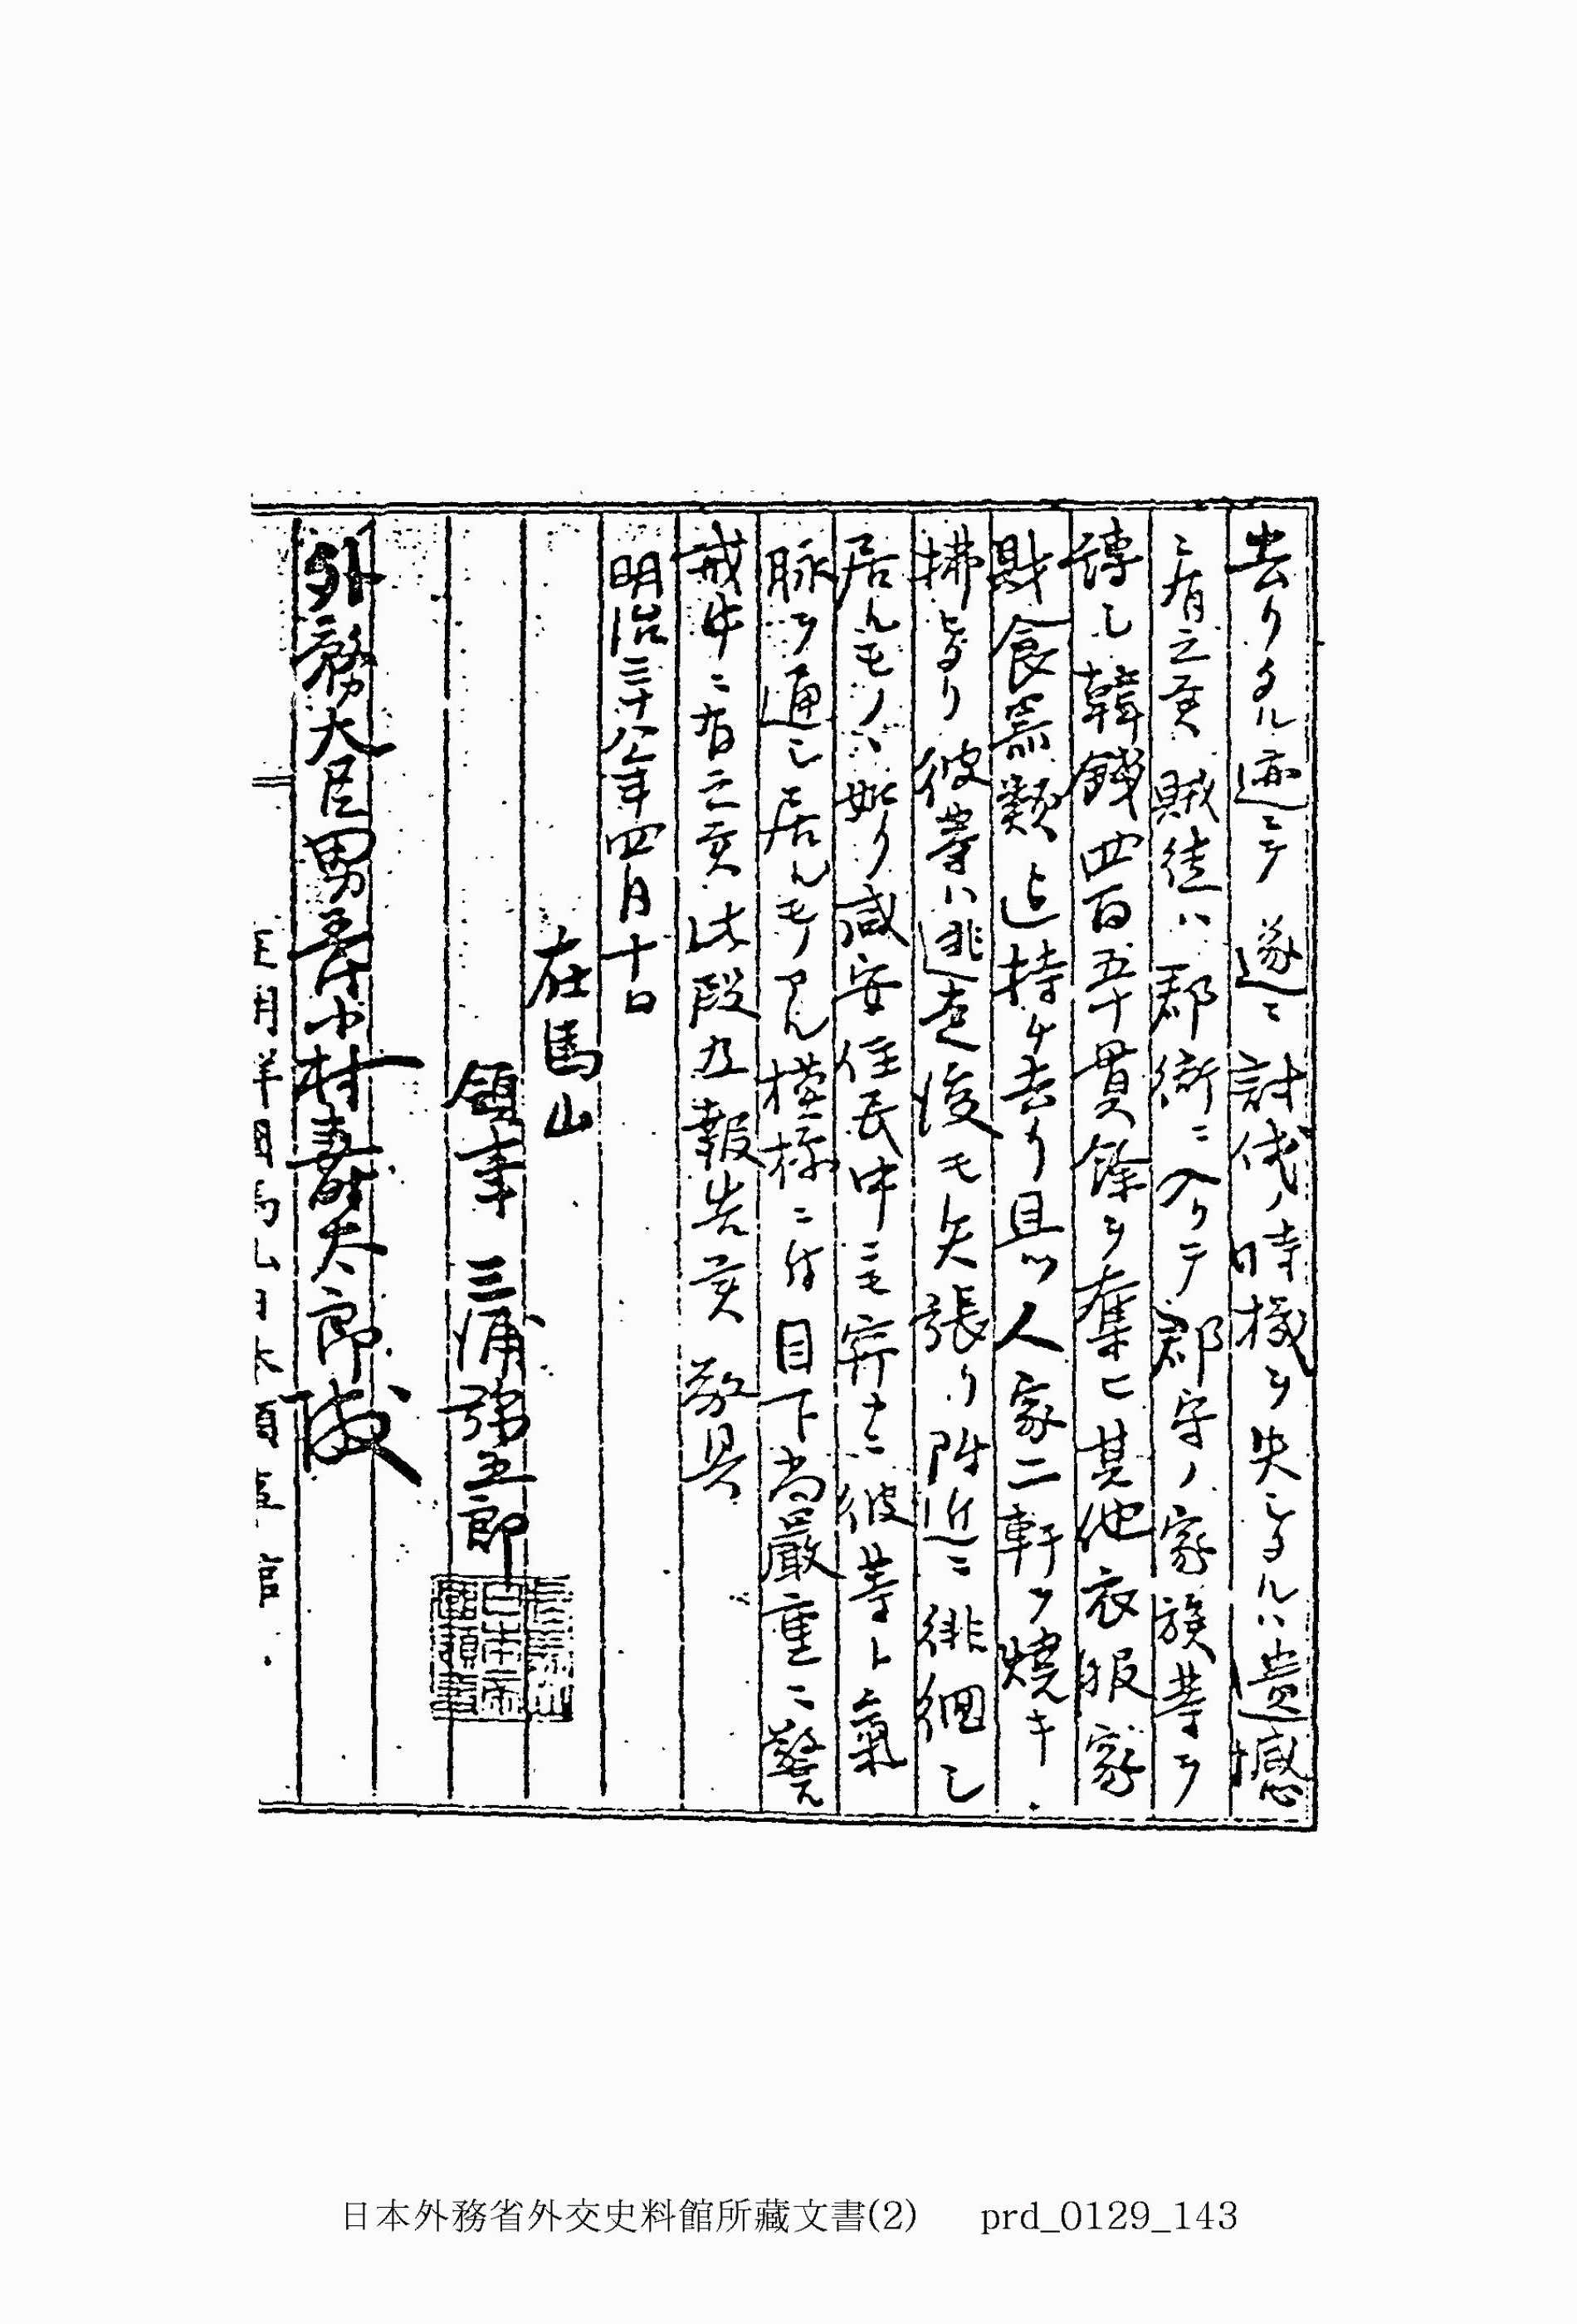 去リタル迹ニテ遂ニ討伐ノ時機ヲ失シタルハ遺憾
ニ有之候賊徒ハ郡衙ニ入リテ郡守ノ家族等ヲ
縛シ韓錢四百五十貫餘ヲ奪ヒ其他衣服家
財食器類迄持チ去リ且ツ人家二軒ヲ燒キ
拂ヒタリ彼等ハ逃走後モ矢張リ附近ニ徘徊シ
居ルモノヽ如ク咸安住民中ニモ窃ニ彼等ト氣
脉ヲ通シ居ルモノアル模樣ニ付目下尚嚴重ニ警
戒中ニ有之候此段及報告候 敬具
明治三十八年四月十日
在馬山
領事 三浦彌五郎
在馬山日本帝國領事
外務大臣男爵小村壽太郎殿
日本領事館
日本外務省外交史料館所藏文書(2) prd_0129_143